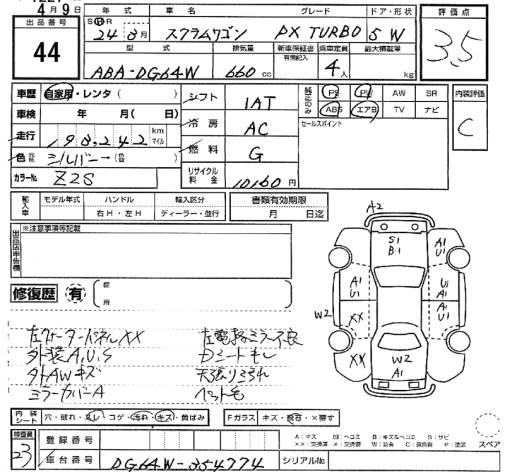 4月9日
出品番号
44
年式 車名 グレード ドア・形状
S H R 24年8月 スクラムワゴン PX TURBO 5 W
型式 排気量 新車保証書 乗車定員 最大積載量
有無記入
ABA-DG64W 660 cc 4人 kg
評価点
3.5
車歴 自家用・レンタ( )
車検 年 月( 日)
走行 198,242 km マイル
色 シルバー
カラーNo. Z2S
シフト 1AT
冷房 AC
燃料 G
リサイクル料金 10160 円
純正のみ PS PW AW SR
ABS エアB TV ナビ
セールスポイント
内装評価
C
輸入車 モデル年式 ハンドル 輸入区分
右H・左H ディーラー・並行
書類有効期限
月 日迄
出品店申告欄
※注意事項等記載
修復歴 有
箇所
左クォーターパネルXX 左電格ミラー不良
外装A,U,S Dシートモレ
外AWキズ
ミラーカバーA
A2
S1
B1
A1
U1
A1
U1
U1
A1
A1
U1
W2
XX
XX
W2
A1
A1
U1
内装シート 穴・破れ・スレ・コゲ・汚れ・キズ・黄ばみ
Fガラス キズ・飛石・X要す
検査員
23
登録番号
車台番号 DG64W-254774
シリアルNo.
A:キズ U:ヘコミ B:キズ&ヘコミ S:サビ
XX:交換済 X:要交換 W:波 C:腐食 P:塗装
スペア